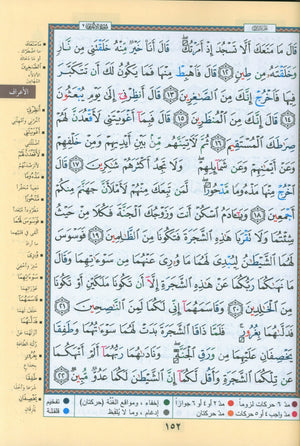 قَالَ مَا مَنَعَكَ أَلَّا تَسْجُدَ إِذْ أَمَرْتُكَ ۖ قَالَ أَنَا۠ خَيْرٌ مِّنْهُ خَلَقْتَنِى مِن نَّارٍ
وَخَلَقْتَهُۥ مِن طِينٍ ١٢ قَالَ فَٱهْبِطْ مِنْهَا فَمَا يَكُونُ لَكَ أَن تَتَكَبَّرَ
فِيهَا فَٱخْرُجْ إِنَّكَ مِنَ ٱلصَّٰغِرِينَ ١٣ قَالَ أَنظِرْنِىٓ إِلَىٰ يَوْمِ يُبْعَثُونَ
١٤ قَالَ إِنَّكَ مِنَ ٱلْمُنظَرِينَ ١٥ قَالَ فَبِمَآ أَغْوَيْتَنِى لَأَقْعُدَنَّ لَهُمْ
صِرَٰطَكَ ٱلْمُسْتَقِيمَ ١٦ ثُمَّ لَـَٔاتِيَنَّهُم مِّنۢ بَيْنِ أَيْدِيهِمْ وَمِنْ خَلْفِهِمْ
وَعَنْ أَيْمَٰنِهِمْ وَعَن شَمَآئِلِهِمْ ۖ وَلَا تَجِدُ أَكْثَرَهُمْ شَٰكِرِينَ ١٧ قَالَ
ٱخْرُجْ مِنْهَا مَذْءُومًا مَّدْحُورًا ۖ لَّمَن تَبِعَكَ مِنْهُمْ لَأَمْلَأَنَّ جَهَنَّمَ مِنكُمْ
أَجْمَعِينَ ١٨ وَيَٰٓـَٔادَمُ ٱسْكُنْ أَنتَ وَزَوْجُكَ ٱلْجَنَّةَ فَكُلَا مِنْ حَيْثُ
شِئْتُمَا وَلَا تَقْرَبَا هَٰذِهِ ٱلشَّجَرَةَ فَتَكُونَا مِنَ ٱلظَّٰلِمِينَ ١٩ فَوَسْوَسَ
لَهُمَا ٱلشَّيْطَٰنُ لِيُبْدِىَ لَهُمَا مَا وُۥرِىَ عَنْهُمَا مِن سَوْءَٰتِهِمَا وَقَالَ
مَا نَهَىٰكُمَا رَبُّكُمَا عَنْ هَٰذِهِ ٱلشَّجَرَةِ إِلَّآ أَن تَكُونَا مَلَكَيْنِ أَوْ تَكُونَا
مِنَ ٱلْخَٰلِدِينَ ٢٠ وَقَاسَمَهُمَآ إِنِّى لَكُمَا لَمِنَ ٱلنَّٰصِحِينَ ٢١
فَدَلَّىٰهُمَا بِغُرُورٍ ۚ فَلَمَّا ذَاقَا ٱلشَّجَرَةَ بَدَتْ لَهُمَا سَوْءَٰتُهُمَا وَطَفِقَا
يَخْصِفَانِ عَلَيْهِمَا مِن وَرَقِ ٱلْجَنَّةِ ۖ وَنَادَىٰهُمَا رَبُّهُمَآ أَلَمْ أَنْهَكُمَا
عَن تِلْكُمَا ٱلشَّجَرَةِ وَأَقُل لَّكُمَآ إِنَّ ٱلشَّيْطَٰنَ لَكُمَا عَدُوٌّ مُّبِينٌ ٢٢
الأعراف
مدّ ٦ حركات لزوماً
مدّ ٢ أو ٤ أو ٦ جوازاً
إخفاء، ومواقع الغُنَّة (حركتان)
تفخيم
مدّ واجب ٤ أو ٥ حركات
مدّ حركتان
إدغام، وما لا يُلفَظ
قلقلة
١٥٢